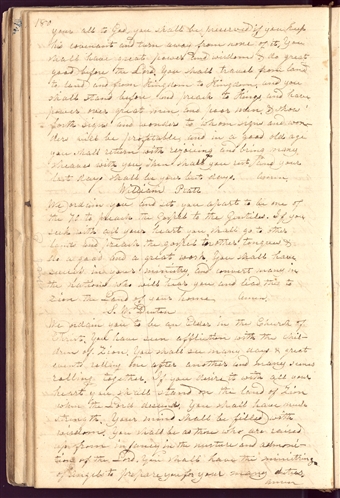 180
your all to God, you shall be preserved if you keep
his covenant and turn away from none of it, you
shall have great power and wisdom & do great
good before the Lord. You shall travel from land
to land and from Kingdom to Kingdom, and you
shall stand before and preach to Kings and have
power over great men and over when & show
forth signs and wonders to whom signs and won-
ders will be profitable, and in a good old age
you shall return with rejoicing and bring many
sheaves with you, Then shall you rest, and your
last days shall be your best days. Amen.
William Pratt
We ordain you and set you apart to be one of
the 70 to preach the Gospel to the Gentiles. If you
seek with all your heart you shall go to other
lands and preach the gospel to other tongues &
do a good and a great work, You shall have
success in your ministry, and convert many in
the nations who will hear you and lead them to
Zion the Land of your home. Amen.
We ordain you to be an Elder in the Church of
Christ. You have seen affliction with the chil-
dren of Zion, You shall see many days & great
events rolling one after another and many scenes
rolling together, If you desire to with all your
heart you shall stand on the land of Zion
when the Lord descends, You shall have much
strength, Your mind shall be filled with
wisdom, You shall be as those who are raised
up from infancy in the nurture and admoni-
tion of the Lord, You shall have the ministering
of angels to prepare you for your
Amen